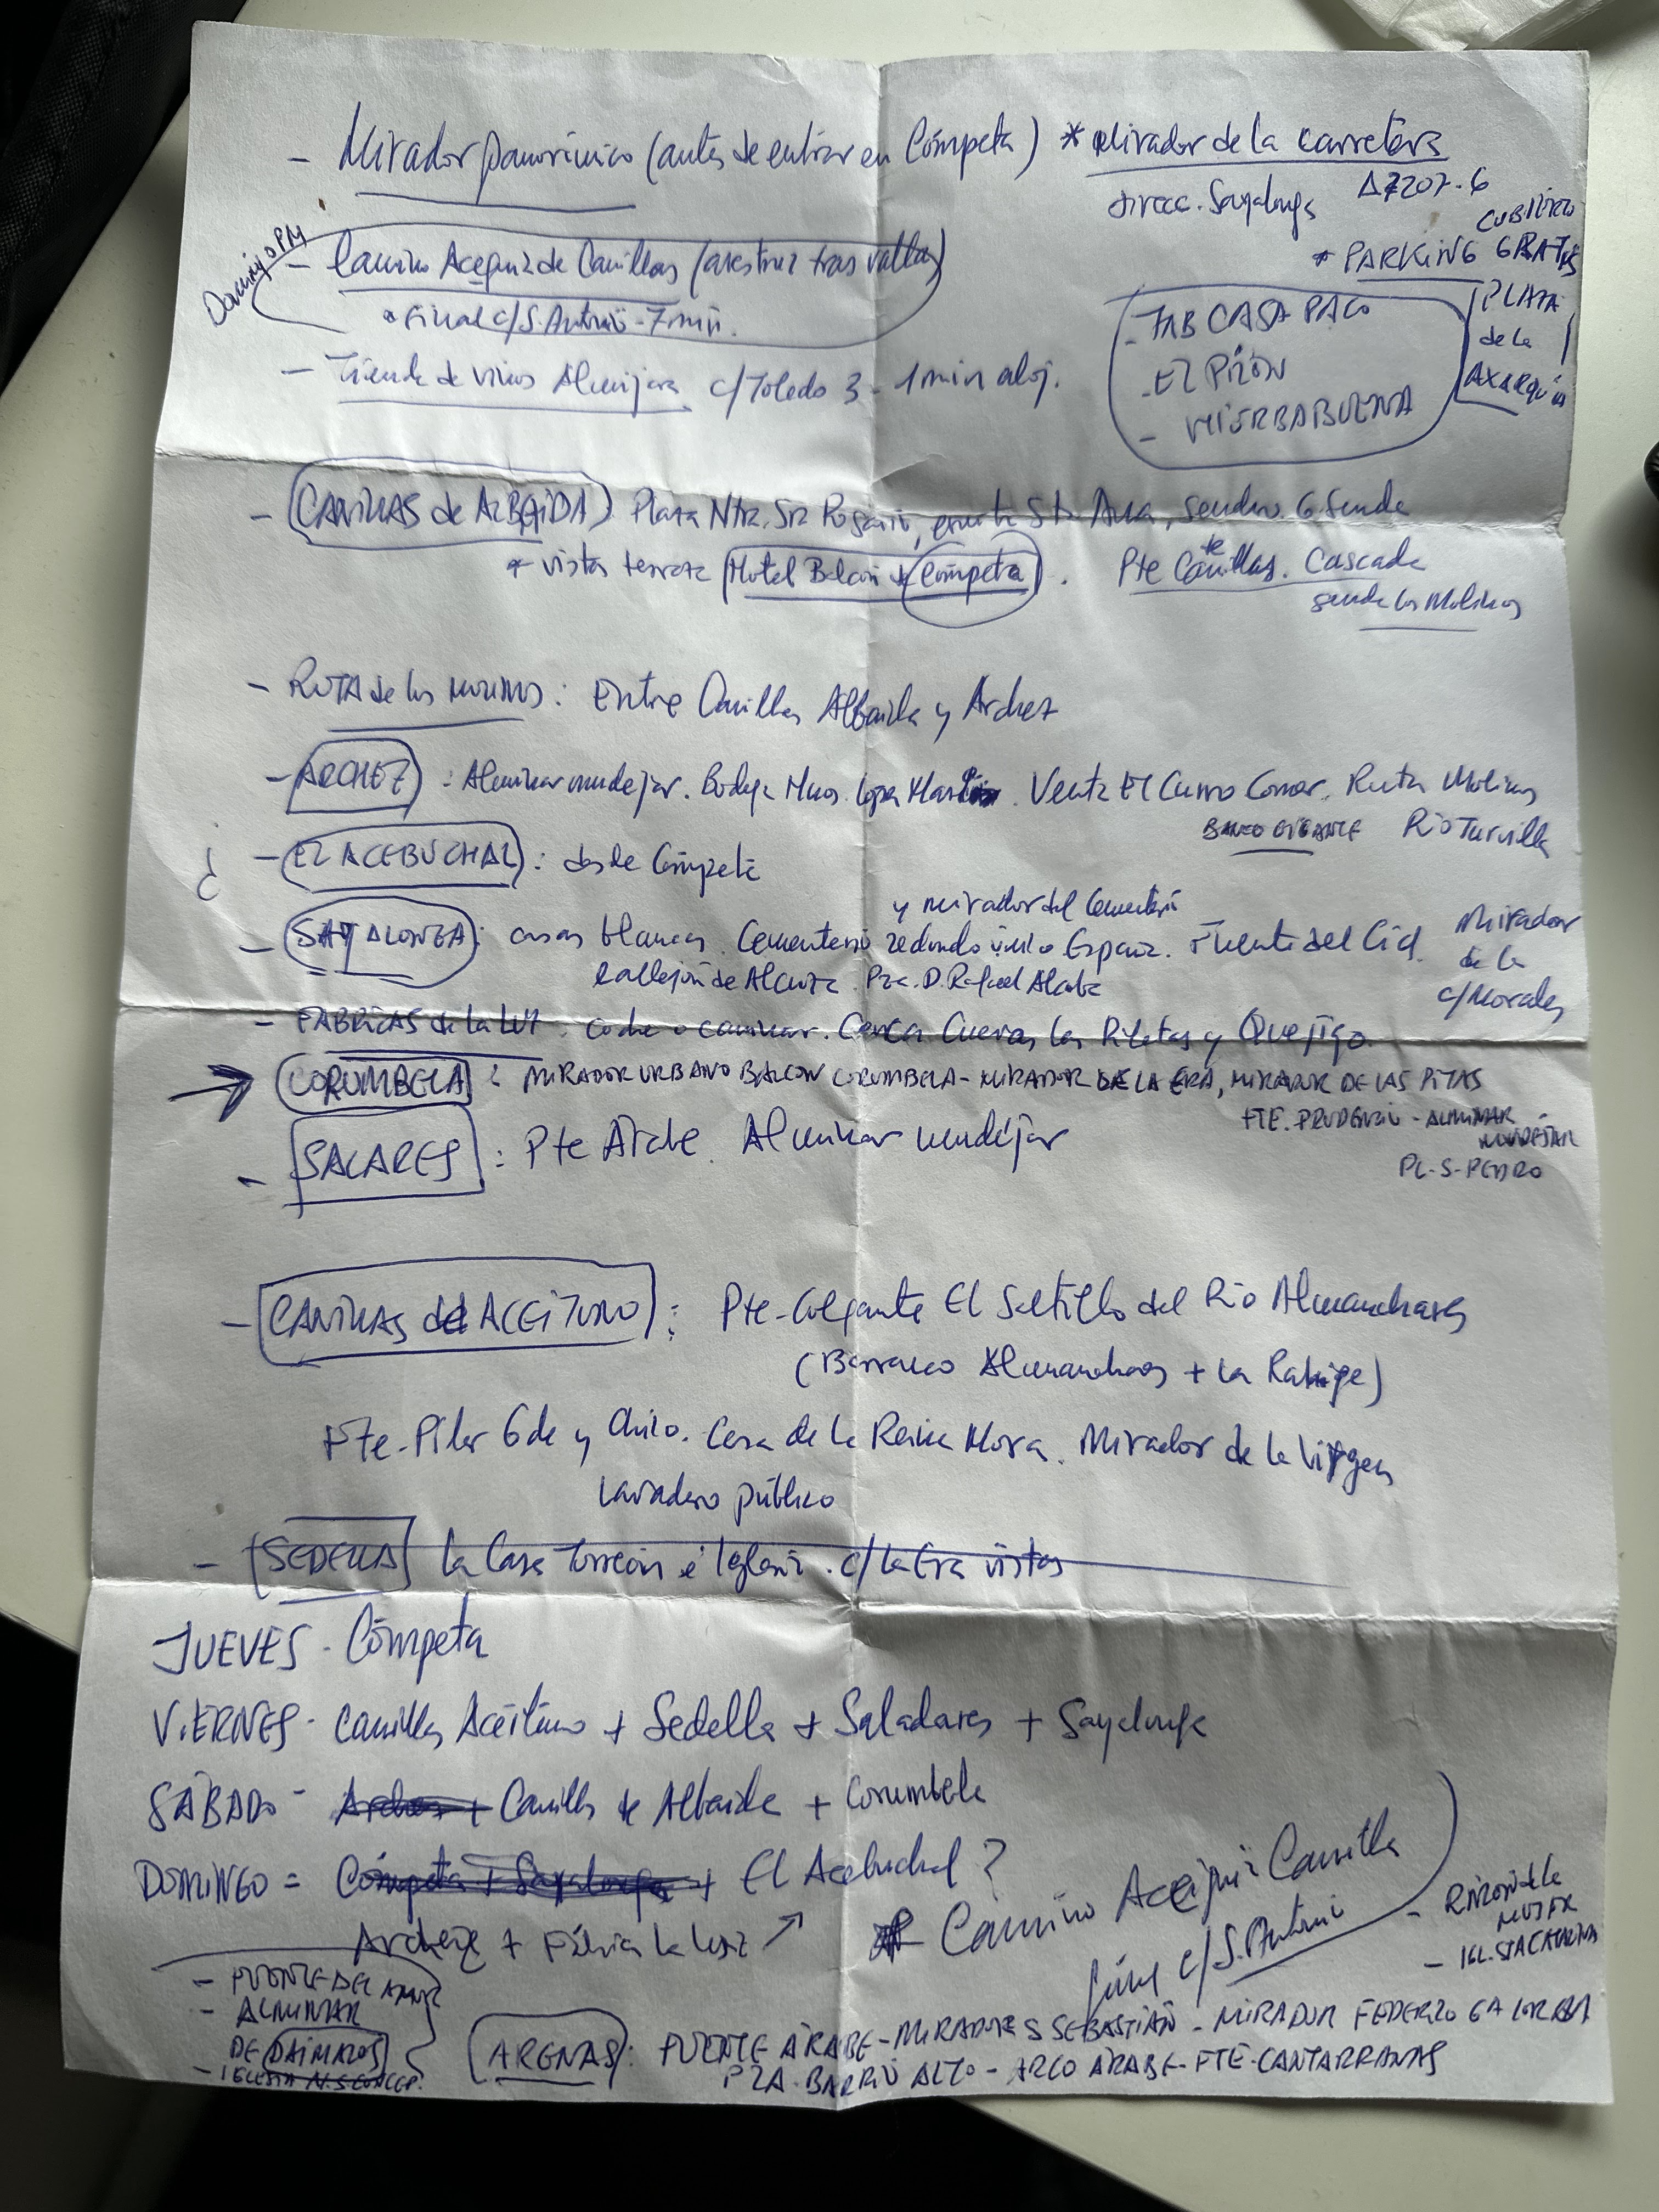 - Mirador panorámico (antes de entrar en Cómpeta) * Mirador de la carretera
direcc. Sayalonga A7207-6
CUBIERTO
* PARKING GRATIS
PLAZA
de la
AXARQUÍA
Domingo PM
- Camino Acequia de Canillas (avestruz tras vallas)
* Final c/S. Antonio - 7 min.
- TAB CASA PACO
- EL PILÓN
- HIERBABUENA
- Tienda de vinos Almijara c/Toledo 3 - 1 min aloj.
- CANILLAS de ALBAIDA) Plaza Ntra. Sra Rosario, ermita Sta. Ana, sendero G. Senda
* vistas terraza Hotel Balcón de Cómpeta. Pte de Canillas. Cascada
senda los Molinos
- RUTA de los MOLINOS: Entre Canillas Albaida y Archez
- ARCHEZ: Alminar mudejar. Bodega Hnos. López Martín. Venta El Curro Comer. Ruta Molinos
BANCO GIGANTE Río Turvilla
¿ - EL ACEBUCHAL: desde Cómpeta
y mirador del Cementerio
- SAYALONGA: casas blancas. Cementerio redondo único España. Fuente del Cid. Mirador
de la
c/Morales
Callejón de Alcuza. Pza. D. Rafael Alcoba
- FÁBRICAS de la LUZ: coche o caminar. Cerca Cuevas Las Piletas y Quejigo.
→ CORUMBELA: MIRADOR URBANO BALCON CORUMBELA - MIRADOR DE LA ERA, MIRADOR DE LAS PITAS
FTE. PRUDENCIO - ALMINAR
MUDÉJAR
PL-S-PEDRO
- SALARES: Pte Árabe. Alminar mudéjar
- CANILLAS del ACEITUNO: Pte-Colgante El Saltillo del Río Almanchares
(Barranco Almanchares + La Rahige)
Fte-Pilar Gde y Chico. Casa de la Reina Mora. Mirador de la Virgen
Lavadero público
- SEDELLA La Casa Torreón e Iglesia. c/La Era vistas
JUEVES - Cómpeta
VIERNES - Canillas Aceituno + Sedella + Saladares + Sayalonga
SÁBADO - Archez + Canillas de Albaida + Corumbela
DOMINGO = Cómpeta + Sayalonga + El Acebuchal?
Archez + Fábrica la Luz ↗
* Camino Acequia Canilla
final c/S. Antonio
- RINCÓN de la
MUJER
- IGL. STA CATARINA
- FUENTE DEL AMOR
- ALMINAR
DE DAIMALOS
- IGLESIA N.S. CONCEP.
ARENAS: PUENTE ÁRABE - MIRADOR S SEBASTIÁN - MIRADOR FEDERICO GA LORCA
PZA. BARRIO ALTO - ARCO ÁRABE - FTE-CANTARRANAS